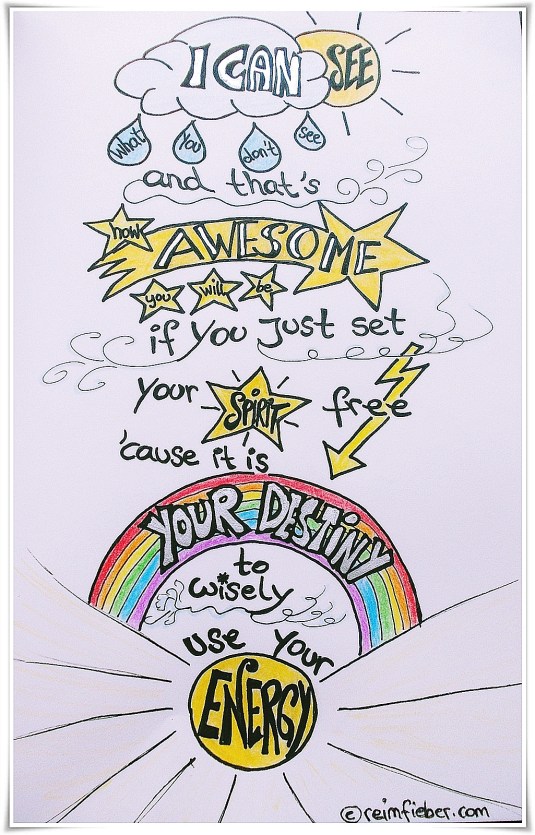 I CAN SEE
What You don't see
and that's
how AWESOME
you will be
if you just set
your SPIRIT free
'cause it is
YOUR DESTINY
to
wisely
use your
ENERGY
©reimfieber.com